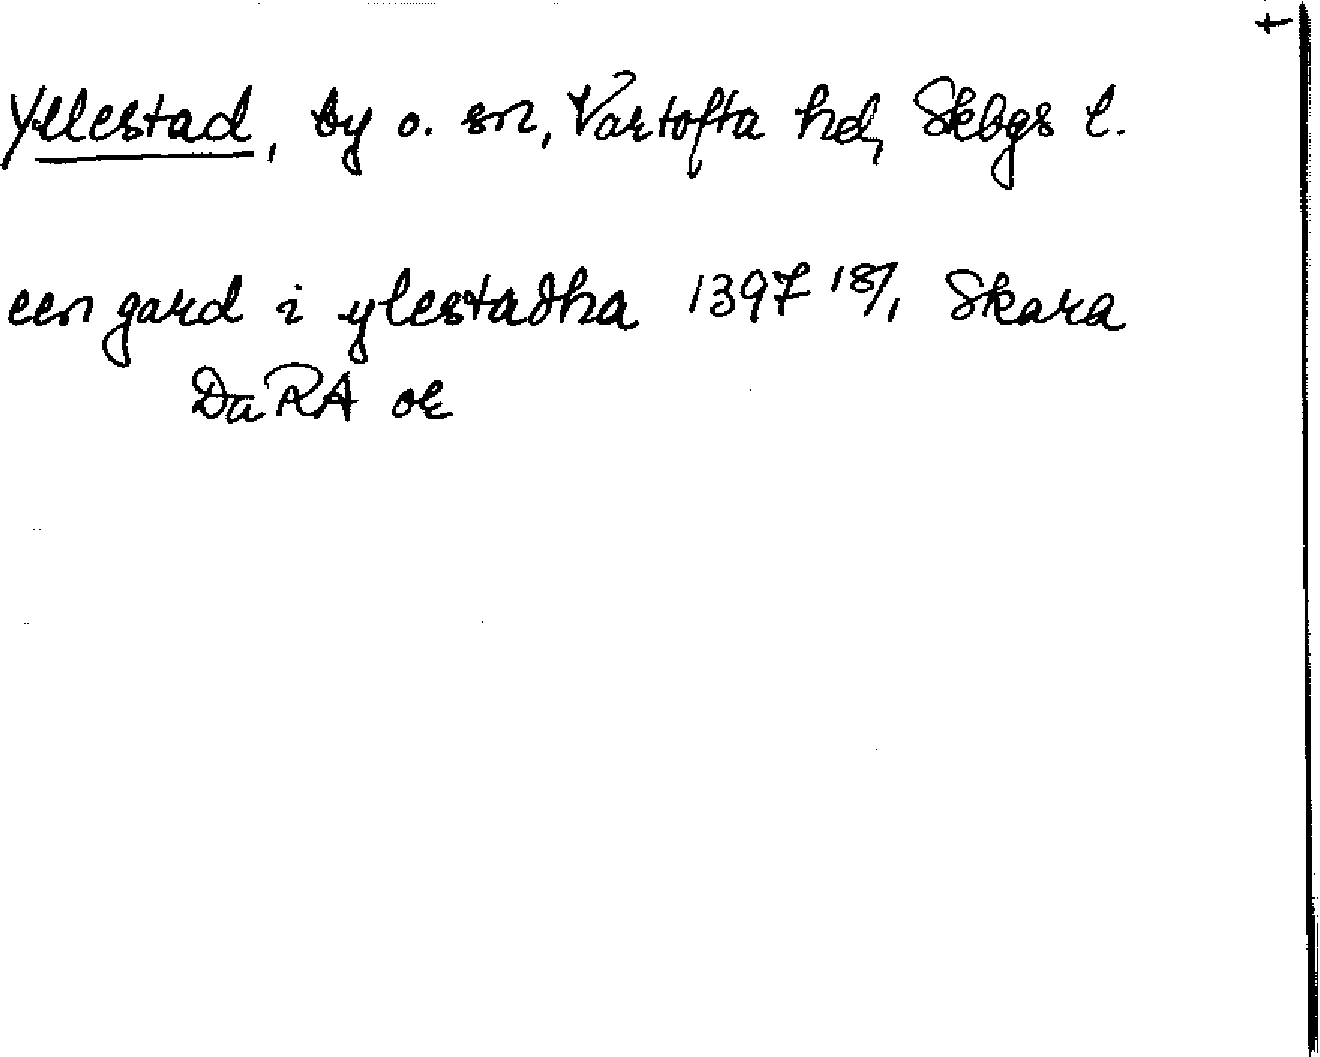 Yllestad, by o. sn, Vartofta hd, Skbgs l.
een gard i ylestadha 1397 18/1 Skara
Da RA or